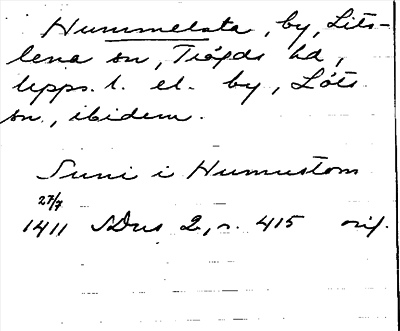 Hummelsta, by, Lits-
lena sn, Trögds hd,
Upps. l. el. by, Löts
sn., ibidem.
Suni i Humustom
27/7
1411 SDns 2, s. 415 orig.